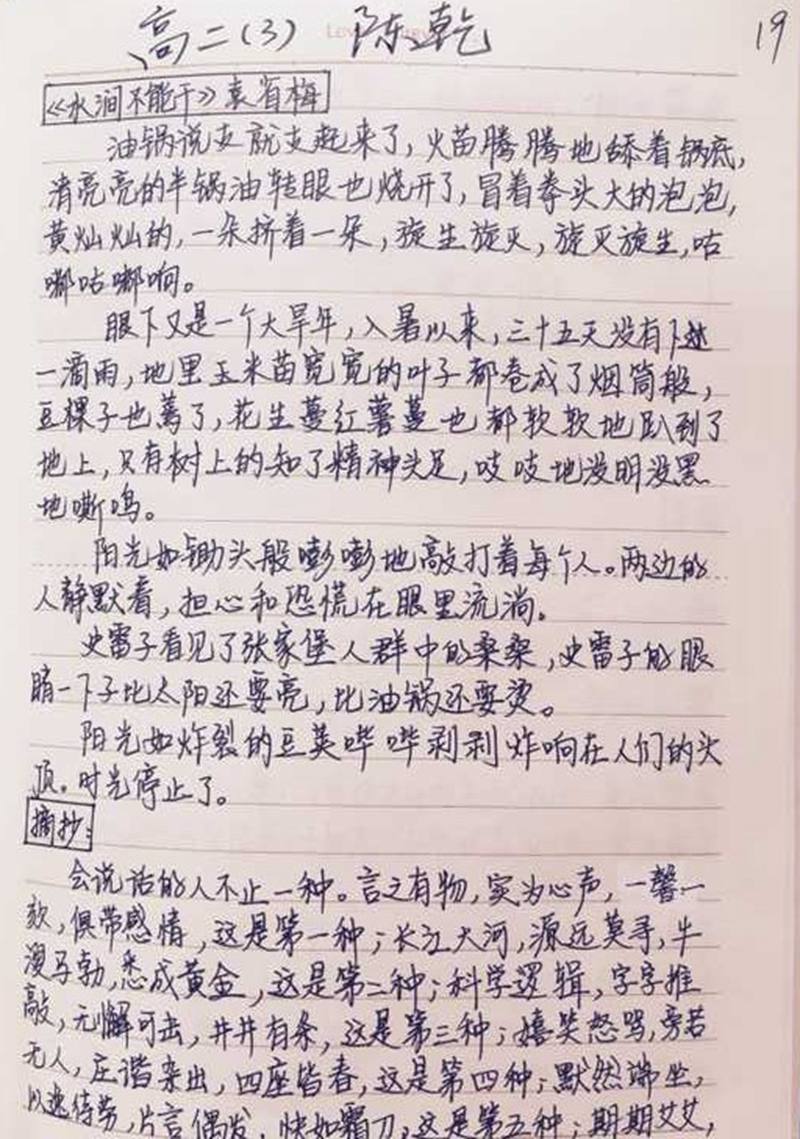 高二(3) 陈乾
19
《水涧不能干》袁省梅
油锅说支就支起来了,火苗腾腾地舔着锅底,
清亮亮的半锅油转眼也烧开了,冒着拳头大的泡泡,
黄灿灿的,一朵挤着一朵,旋生旋灭,旋灭旋生,咕
嘟咕嘟响。
眼下又是一个大旱年,入暑以来,三十五天没有下过
一滴雨,地里玉米苗宽宽的叶子都卷成了烟筒般,
豆棵子也蔫了,花生蔓红薯蔓也都软软地趴到了
地上,只有树上的知了精神头足,吱吱地没明没黑
地嘶鸣。
阳光如锄头般嘭嘭地敲打着每个人。两边的
人静默着,担心和恐慌在眼里流淌。
史雷子看见了张家堡人群中的桑桑,史雷子的眼
睛一下子比太阳还要亮,比油锅还要烫。
阳光如炸裂的豆荚哔哔剥剥炸响在人们的头
顶。时光停止了。
摘抄:
会说话的人不止一种。言之有物,实为心声,一馨一
欬,俱带感情,这是第一种;长江大河,源远莫寻,牛
溲马勃,悉成黄金,这是第二种;科学逻辑,字字推
敲,无懈可击,井井有条,这是第三种;嬉笑怒骂,旁若
无人,庄谐杂出,四座皆春,这是第四种;默然端坐,
以逸待劳,片言偶发,快如霜刀,这是第五种;期期艾艾,